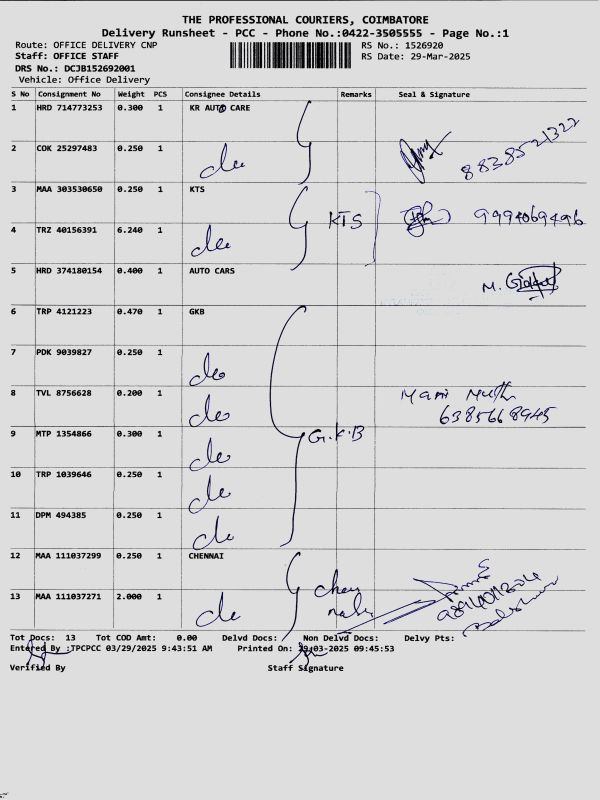 THE PROFESSIONAL COURIERS, COIMBATORE
Delivery Runsheet - PCC - Phone No.:0422-3505555 - Page No.:1
Route: OFFICE DELIVERY CNP RS No.: 1526920
Staff: OFFICE STAFF RS Date: 29-Mar-2025
DRS No.: DCJB152692001
Vehicle: Office Delivery
S No Consignment No Weight PCS Consignee Details Remarks Seal & Signature
1 HRD 714773253 0.300 1 KR AUTO CARE
2 COK 25297483 0.250 1 do 8838521322
3 MAA 303530650 0.250 1 KTS
KTS 9994069496
4 TRZ 40156391 6.240 1 do
5 HRD 374180154 0.400 1 AUTO CARS
M.
6 TRP 4121223 0.470 1 GKB
7 PDK 9039827 0.250 1 do
8 TVL 8756628 0.200 1 do Mari Muth
6385668945
9 MTP 1354866 0.300 1 do G.K.B
10 TRP 1039646 0.250 1 do
11 DPM 494385 0.250 1 do
12 MAA 111037299 0.250 1 CHENNAI
13 MAA 111037271 2.000 1 do
Tot Docs: 13 Tot COD Amt: 0.00 Delvd Docs: Non Delvd Docs: Delvy Pts:
Entered By :TPCPCC 03/29/2025 9:43:51 AM Printed On: 29-03-2025 09:45:53
Verified By Staff Signature